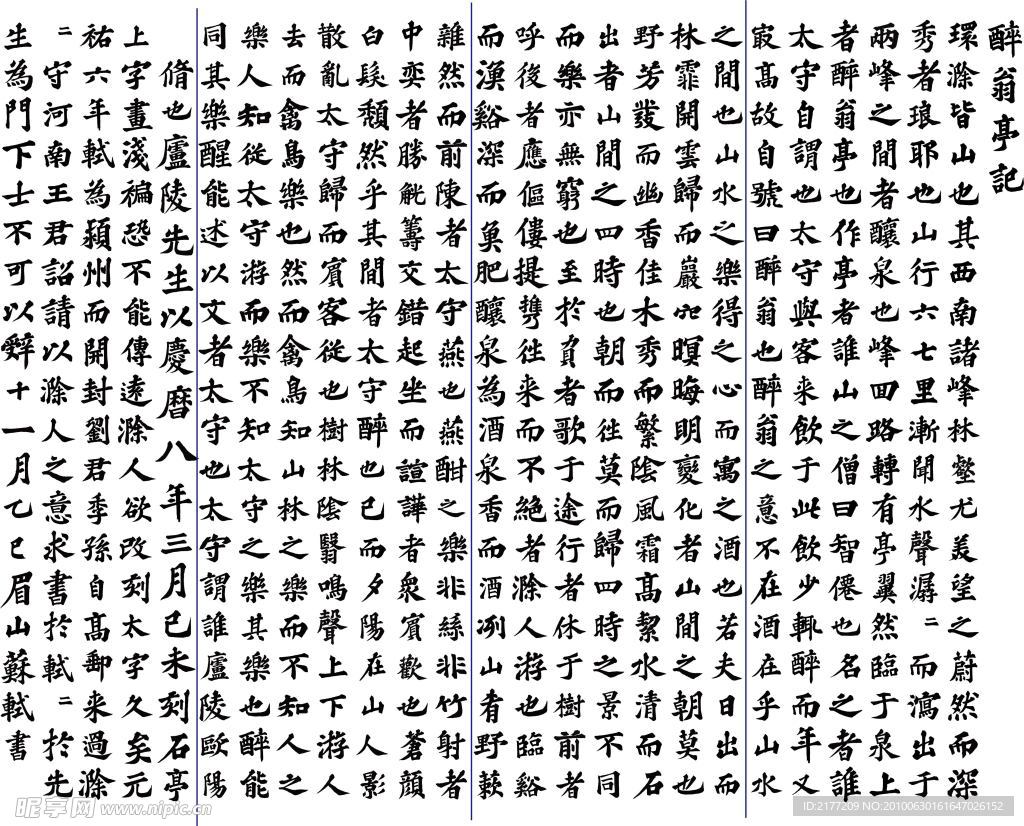 醉翁亭記
環滁皆山也其西南諸峰林壑尤美望之蔚然而深
秀者琅耶也山行六七里漸聞水聲潺〻而瀉出于
兩峰之間者釀泉也峰回路轉有亭翼然臨于泉上
者醉翁亭也作亭者誰山之僧曰智僊也名之者誰
太守自謂也太守與客来飲于此飲少輒醉而年又
㝡高故自號曰醉翁也醉翁之意不在酒在乎山水
之間也山水之樂得之心而寓之酒也若夫日出而
林霏開雲歸而巖穴暝晦明變化者山間之朝莫也
野芳發而幽香佳木秀而繁陰風霜高絜水清而石
出者山間之四時也朝而往莫而歸四時之景不同
而樂亦無窮也至於負者歌于途行者休于樹前者
呼後者應傴僂提攜往来而不絶者滁人游也臨谿
而漁谿深而魚肥釀泉為酒泉香而酒洌山肴野蔌
雜然而前陳者太守燕也燕酣之樂非絲非竹射者
中奕者勝觥籌交錯起坐而諠譁者衆賓歡也蒼顔
白髮頹然乎其間者太守醉也已而夕陽在山人影
散亂太守歸而賓客從也樹林陰翳鳴聲上下游人
去而禽鳥樂也然而禽鳥知山林之樂而不知人之
樂人知從太守游而樂不知太守之樂其樂也醉能
同其樂醒能述以文者太守也太守謂誰廬陵歐陽
脩也廬陵先生以慶曆八年三月己未刻石亭
上字畫淺褊恐不能傳遠滁人欲改刻太字久矣元
祐六年軾為潁州而開封劉君季孫自高郵来過滁
〻守河南王君詔請以滁人之意求書於軾〻於先
生為門下士不可以辭十一月乙巳眉山蘇軾書
昵享网 www.nipic.cn
ID:2177209 NO:20100630161647026152